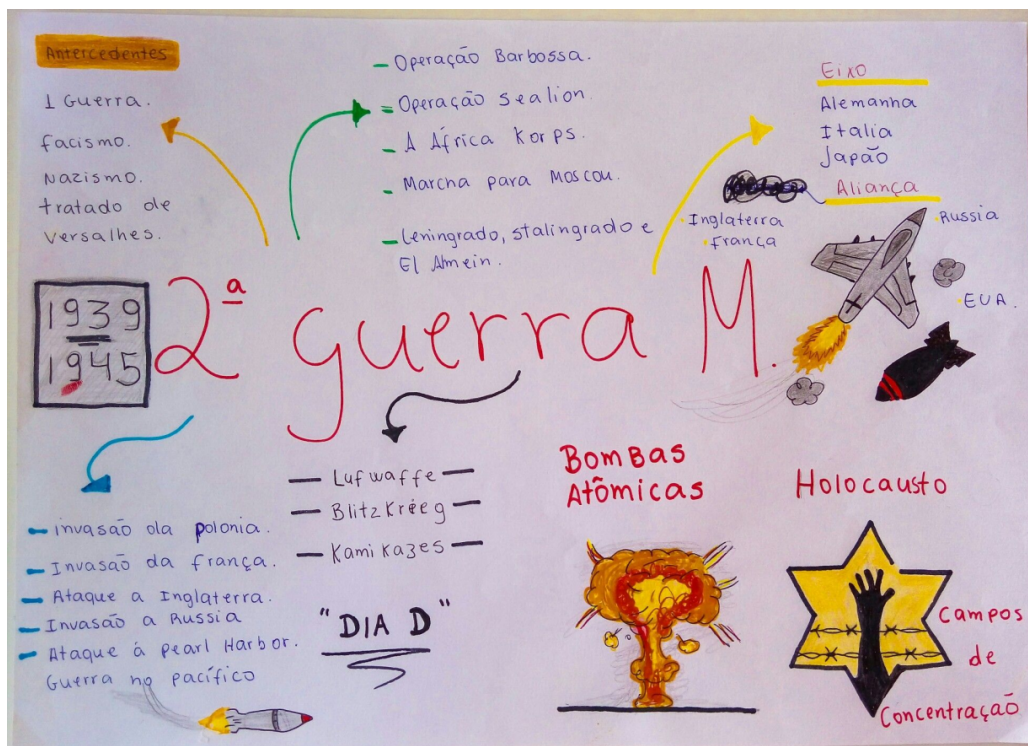 Antercedentes
1 Guerra.
facismo.
Nazismo.
tratado de
Versalhes.
- Operação Barbossa.
- Operação Sealion.
- A África Korps.
- Marcha para Moscou.
- Leningrado, Stalingrado e
El Almein.
Eixo
Alemanha
Italia
Japão
Aliança
Inglaterra
França
Russia
EUA.
1939
1945
2ª guerra M.
- invasão da polonia.
- Invasão da frança.
- Ataque a Inglaterra.
- Invasão a Russia
- Ataque á pearl Harbor.
Guerra no pacífico
- Lufwaffe -
- Blitzkrieeg -
- Kamikazes -
"DIA D"
Bombas
Atômicas
Holocausto
Campos
de
Concentração